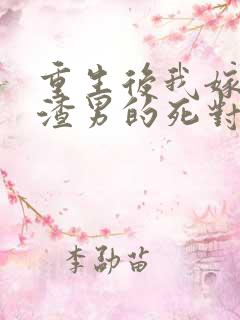 重生後我嫁
渣男的死對
李劭苗